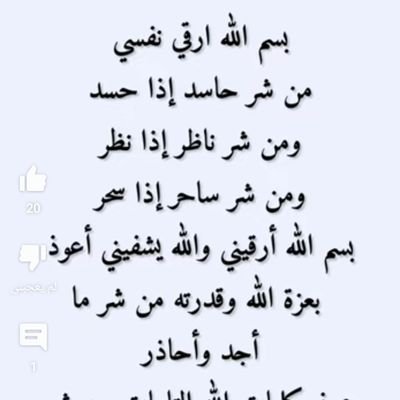 بسم الله ارقي نفسي
من شر حاسد إذا حسد
ومن شر ناظر إذا نظر
ومن شر ساحر إذا سحر
بسم الله أرقيني والله يشفيني أعوذ
بعزة الله وقدرته من شر ما
أجد وأحاذر
20
لم يعجبني
1